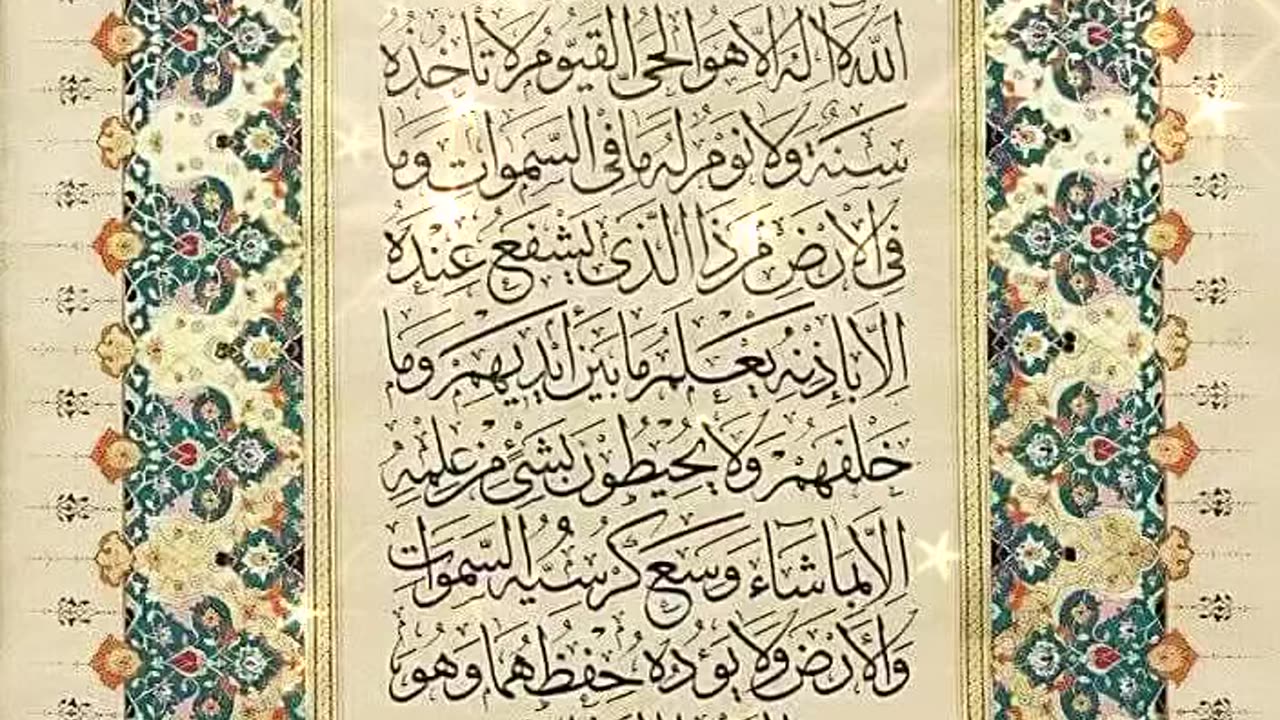 اللَّهُ لَآ اِلٰهَ اِلَّا هُوَ الْحَيُّ الْقَيُّومُ لَا تَأْخُذُهُ
سِنَةٌ وَلَا نَوْمٌ لَهُ مَا فِي السَّمٰوَاتِ وَمَا
فِي الْاَرْضِ مَنْ ذَا الَّذِي يَشْفَعُ عِنْدَهُ
اِلَّا بِاِذْنِهِ يَعْلَمُ مَا بَيْنَ اَيْدِيهِمْ وَمَا
خَلْفَهُمْ وَلَا يُحِيطُونَ بِشَيْءٍ مِنْ عِلْمِهِ
اِلَّا بِمَا شَآءَ وَسِعَ كُرْسِيُّهُ السَّمٰوَاتِ
وَالْاَرْضَ وَلَا يَؤُدُهُ حِفْظُهُمَا وَهُوَ